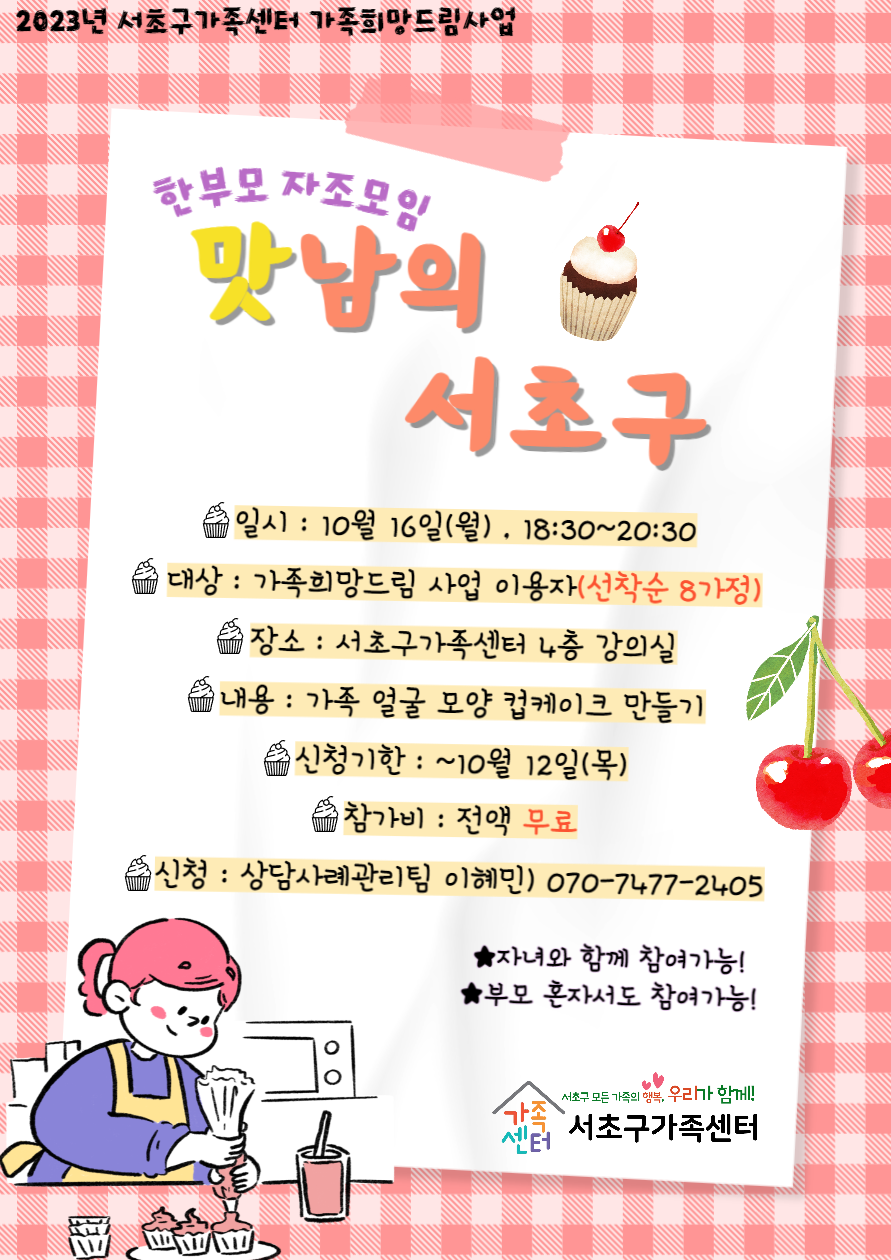 2023년 서초구가족센터 가족희망드림사업
한부모 자조모임
맛남의
서초구
일시 : 10월 16일(월) , 18:30~20:30
대상 : 가족희망드림 사업 이용자(선착순 8가정)
장소 : 서초구가족센터 4층 강의실
내용 : 가족 얼굴 모양 컵케이크 만들기
신청기한 : ~10월 12일(목)
참가비 : 전액 무료
신청 : 상담사례관리팀 이혜민) 070-7477-2405
★자녀와 함께 참여가능!
★부모 혼자서도 참여가능!
가족센터
서초구 모든 가족의 행복, 우리가 함께!!
서초구가족센터